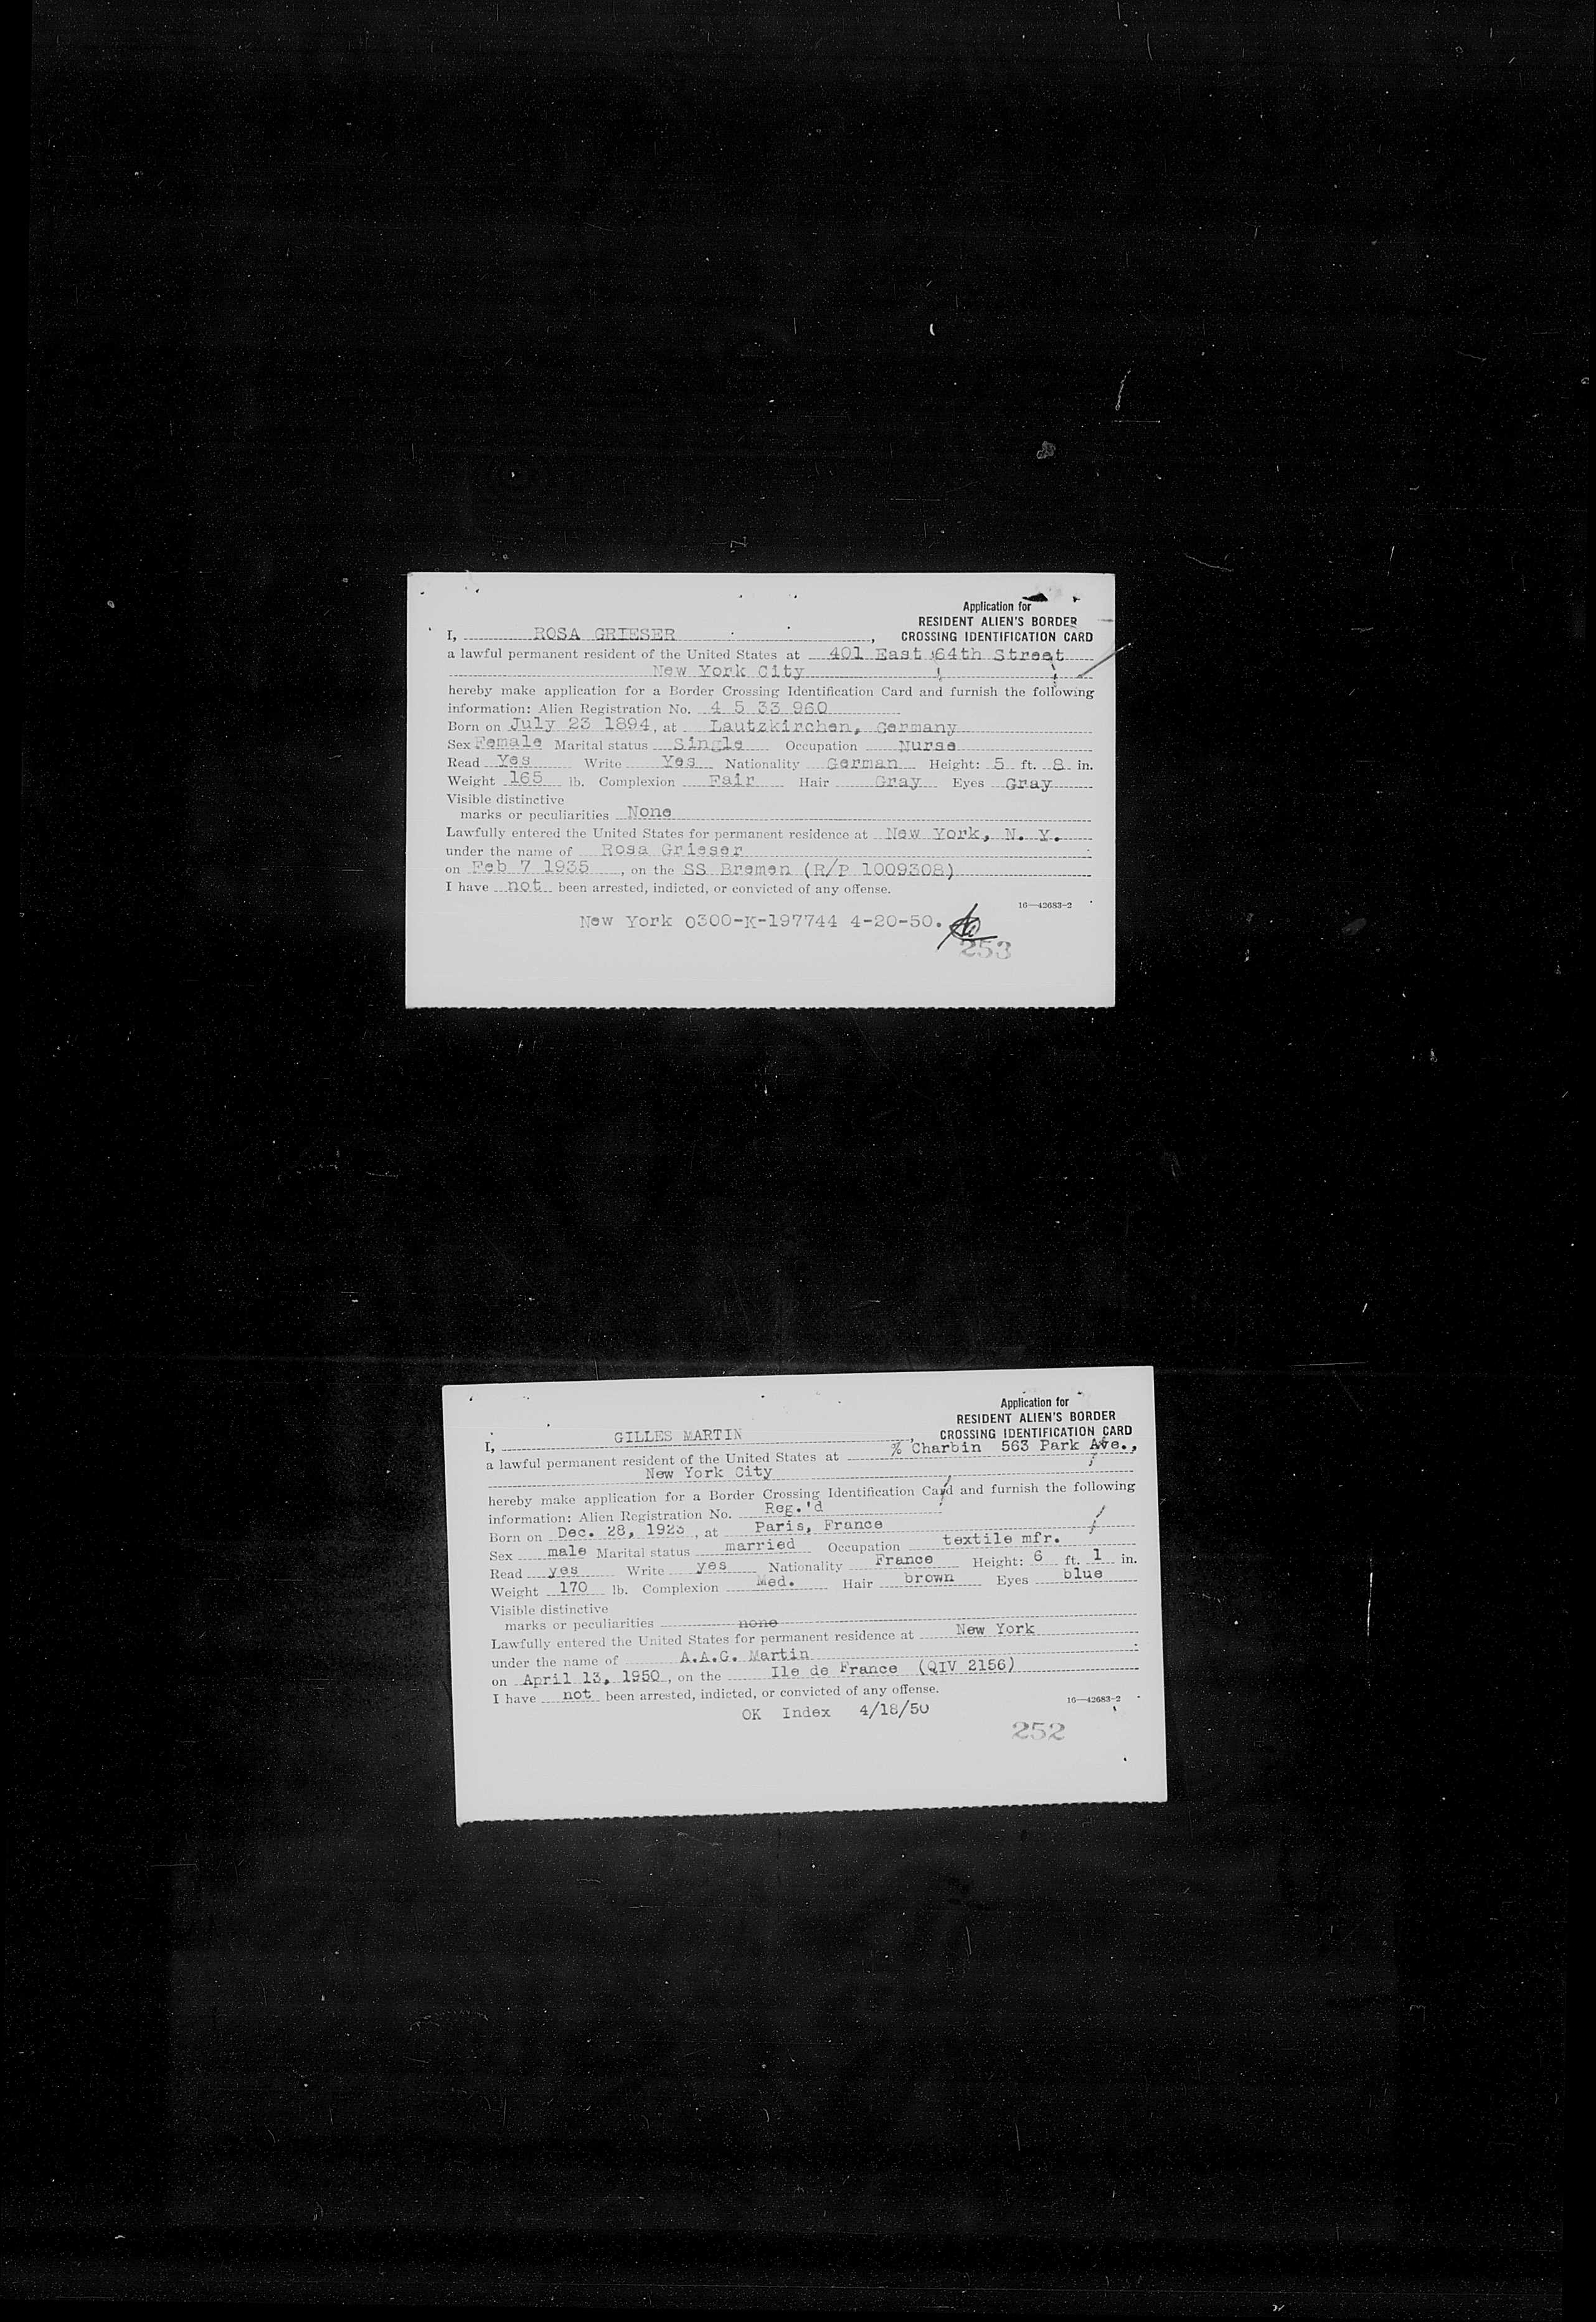 Application for
RESIDENT ALIEN'S BORDER
I, ROSA GRIESER, CROSSING IDENTIFICATION CARD
a lawful permanent resident of the United States at 401 East 64th Street
New York City
hereby make application for a Border Crossing Identification Card and furnish the following
information: Alien Registration No. 4 5 33 960
Born on July 23 1894, at Lautzkirchen, Germany
Sex Female Marital status Single Occupation Nurse
Read Yes Write Yes Nationality German Height: 5 ft. 8 in.
Weight 165 lb. Complexion Fair Hair Gray Eyes Gray
Visible distinctive
marks or peculiarities None
Lawfully entered the United States for permanent residence at New York, N. Y.
under the name of Rosa Grieser
on Feb 7 1935, on the SS Bremen (R/P 1009308)
I have not been arrested, indicted, or convicted of any offense.
16—42683-2
New York 0300-K-197744 4-20-50.
253
Application for
RESIDENT ALIEN'S BORDER
I, GILLES MARTIN, CROSSING IDENTIFICATION CARD
a lawful permanent resident of the United States at % Charbin 563 Park Ave.,
New York City
hereby make application for a Border Crossing Identification Card and furnish the following
information: Alien Registration No. Reg.'d
Born on Dec. 28, at Paris, France
Sex male Marital status married Occupation textile mfr.
Read yes Write yes Nationality France Height: 6 ft. 1 in.
Weight 170 lb. Complexion Med. Hair brown Eyes blue
Visible distinctive
marks or peculiarities none
Lawfully entered the United States for permanent residence at New York
under the name of A.A.G. Martin
on April 13, 1950, on the Ile de France (QIV 2156)
I have not been arrested, indicted, or convicted of any offense.
16—42683-2
OK Index 4/18/50
252